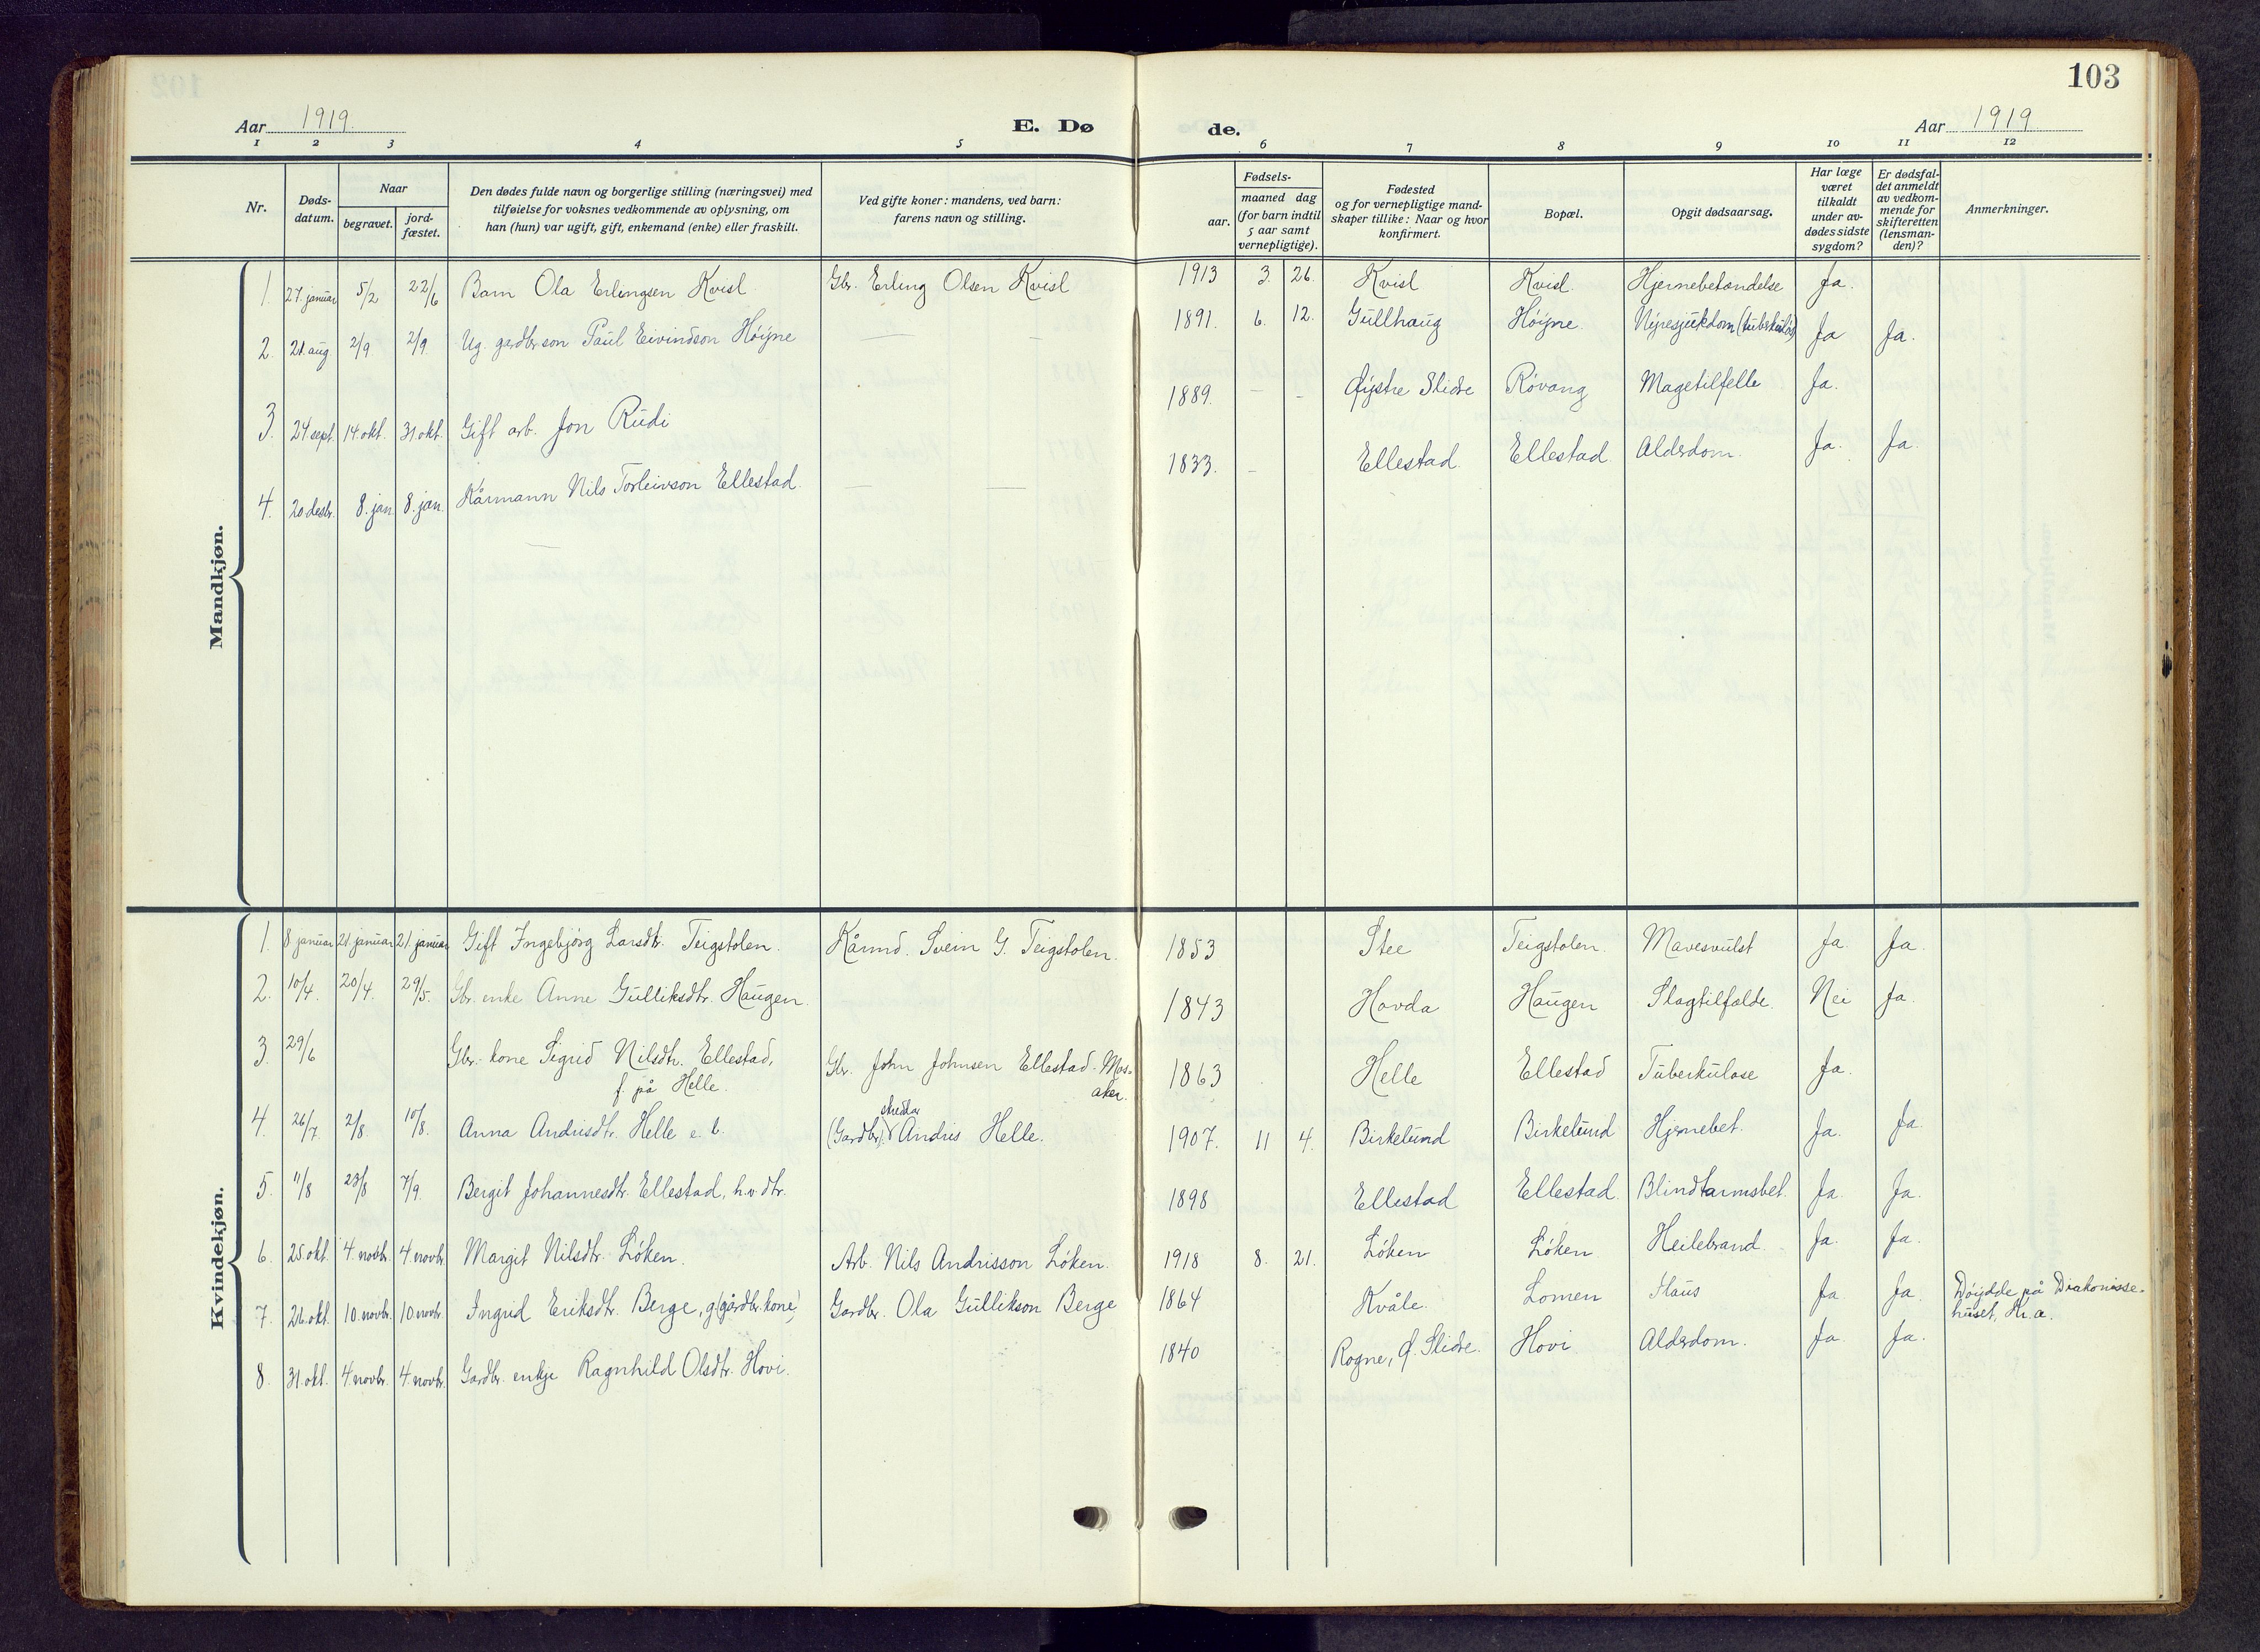 103
Aar 1919.
E. Dø
de.
Aar 1919
1 2 3 4 5 6 7 8 9 10 11 12
Nr.
Døds-
datum.
Naar
begravet.
jord-
fæstet.
Den dødes fulde navn og borgerlige stilling (næringsvei) med
tilføielse for voksnes vedkommende av oplysning, om
han (hun) var ugift, gift, enkemand (enke) eller fraskilt.
Ved gifte koner: mandens, ved barn:
farens navn og stilling.
Fødsels-
aar.
maaned dag
(for barn indtil
5 aar samt
vernepligtige).
Fødested
og for vernepligtige mand-
skaper tillike: Naar og hvor
konfirmert.
Bopæl.
Opgit dødsaarsag.
Har læge
været
tilkaldt
under av-
dødes sidste
sygdom?
Er dødsfal-
det anmeldt
av vedkom-
mende for
skifteretten
(lensman-
den)?
Anmerkninger.
Mandkjøn.
1. 27. januar 5/2 22/6 Barn Ola Erlingsen Kvisl Gbr. Erling Olsen Kvisl 1913 3. 26. Kvisl Kvisl. Hjernebetændelse Ja.
2. 21. aug 2/9 2/9 Ug. gardbr.son Paul Eivindson Høyne — — 1891. 6. 12. Gullhaug Høyne. Nyresjukdom (tuberkuløs) Ja Ja.
3. 24 sept. 14. okt. 31. okt. Gift arb. Jon Rudi 1889. — - Øystre Slidre Røvang Magetilfelle Ja.
4. 20 desbr. 8. jan. 8. jan. Kårmann Nils Torleivson Ellestad. — — 1833. — Ellestad. Ellestad. Alderdom. Ja. Ja.
—
Kvindekjøn.
1. 8 januar 21. januar 21. januar Gift Ingebjørg Larsdtr. Teigstolen. Kårmd. Svein G. Teigstolen. 1853 Stee Teigstolen. Mavesvulst Ja. Ja.
2. 10/4. 20/4. 29/5. Gbr. enke Anne Gulliksdtr. Haugen. 1843 Hovda Haugen Slagtilfælde. Nei Ja.
3. 29/6 Gbr. kone Sigrid Nilsdtr. Ellestad, Gbr. John Johnsen Ellestad-Mos- 1863 Helle Ellestad Tuberkulose Ja.
f. på Helle. aker.
skreddar
4. 26/7. 2/8. 10/8. Anna Andrisdtr. Helle e. b. (Gardbr.) Andris Helle. 1907. 11 4. Birkelund Birkelund Hjernebet. Ja. Ja.
5. 11/8 23/8 7/9. Bergit Johannesdtr. Ellestad, h.v. dtr. 1898 Ellestad Ellestad. Blindtarmsbet. Ja. Ja.
6. 25. okt. 4. novbr. 4. novbr. Margit Nilsdtr. Løken. Arb. Nils Andrisson Løken. 1918 8. 21. Løken Løken Heilebrand. Ja. Ja.
7. 26. okt. 10. novbr. 10. novbr. Ingrid Eriksdtr. Berge, g. (gårdbr. kone) Gardbr. Ola Gullikson Berge 1864 Kvåle. Lomen Ja Ja. Døydde på Diakonisse-
huset, Kr.a.
8. 31. okt. 4 novbr. 4. novbr. Gardbr. enkje Ragnhild Olsdtr. Hovi. 1840 Rogne, Ø. Slidre. Hovi Alderdom. Ja. Ja.